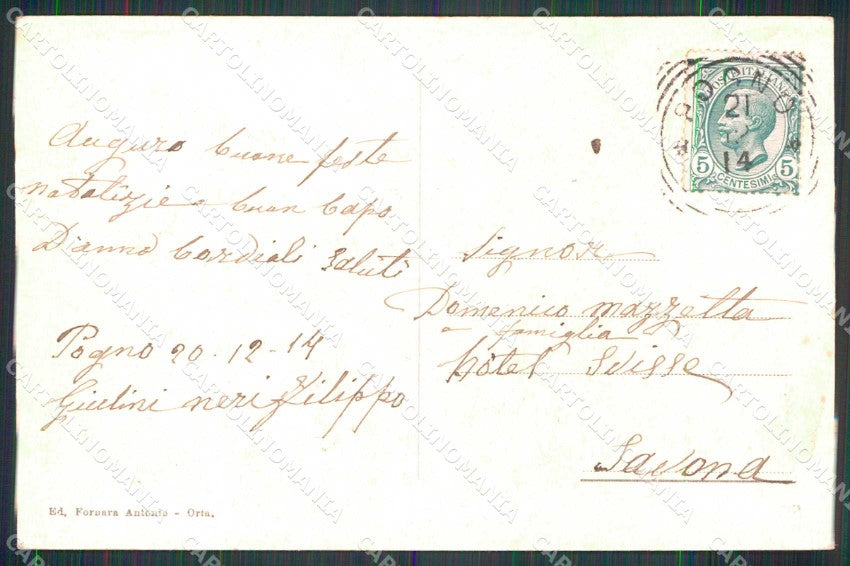 Auguro buone feste
natalizie e buon Capo
D'anno Cordiali Saluti
Pogno 20-12-14
Giulini neri Filippo
Ed. Fornara Antonio - Orta.
POGNO
21
12
14
POSTE ITALIANE
5 5
CENTESIMI
Signor
Domenico mazzetta
e famiglia
Hôtel Suisse
Savona
CARTOLINOMANIA